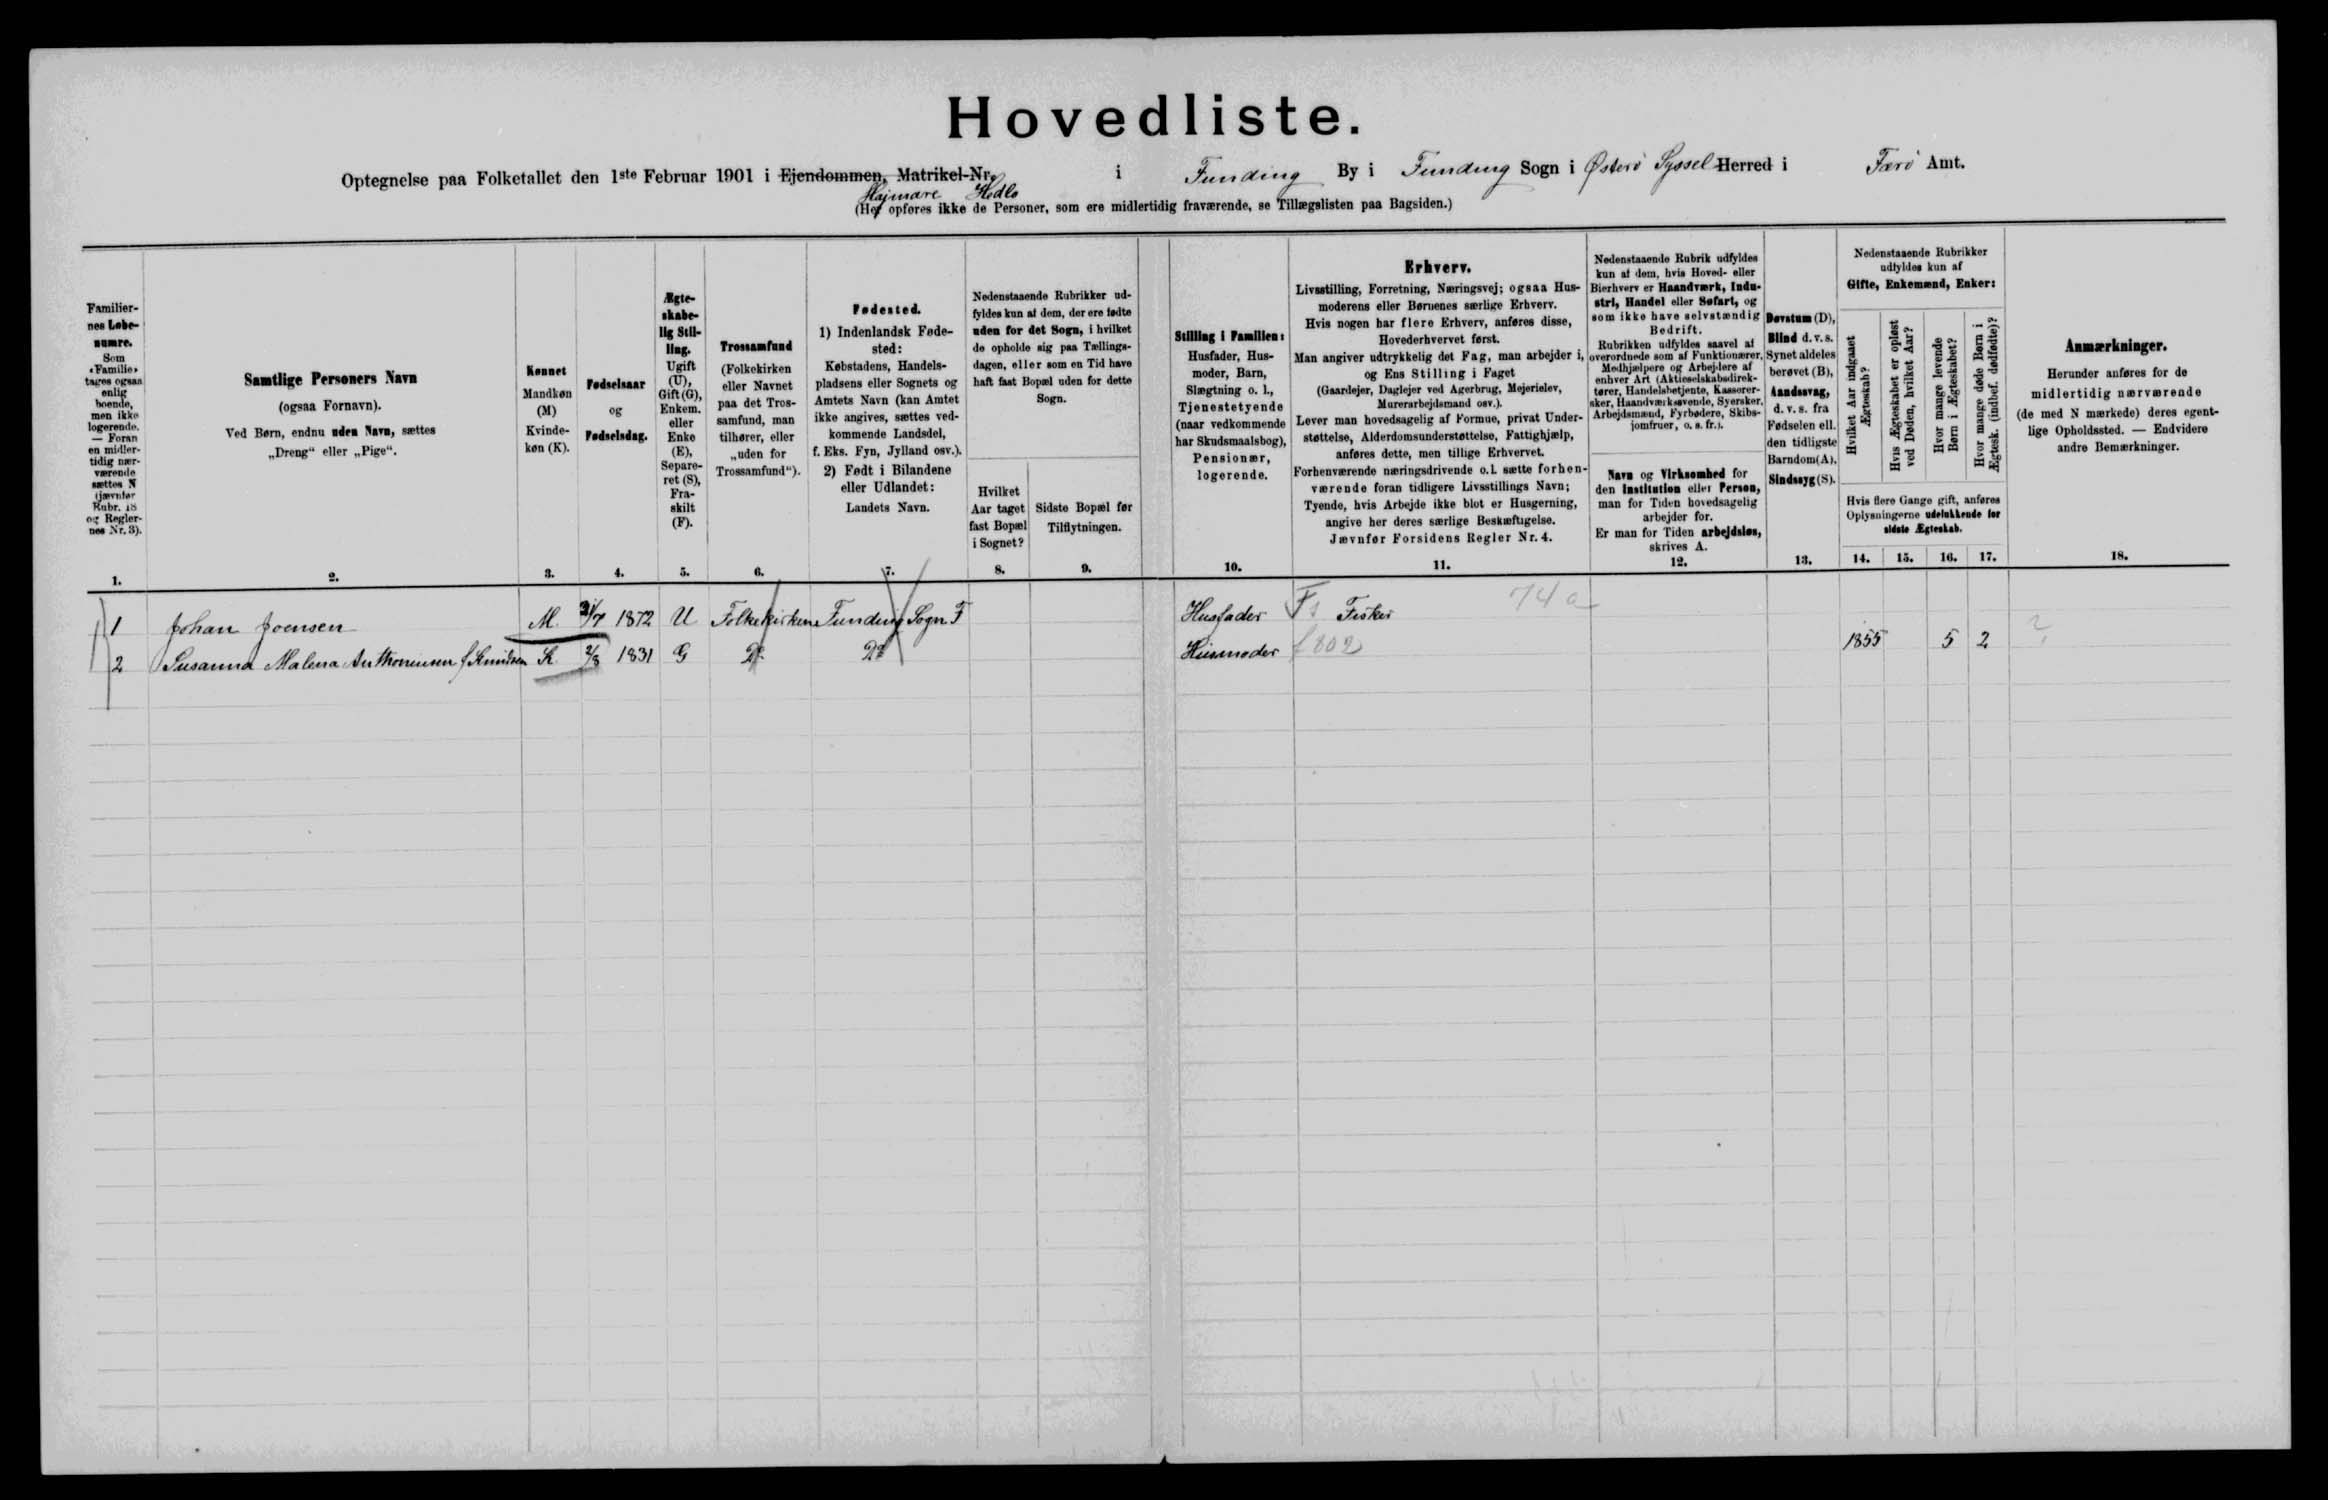 Hovedliste.
Optegnelse paa Folketallet den 1ste Februar 1901 i Ejendommen, Matrikel-Nr. i Funding By i Funding Sogn i Østerö Syssel Herred i Færö Amt.
Hajmare Hedlo
(Her opføres ikke de Personer, som ere midlertidig fraværende, se Tillægslisten paa Bagsiden.)
Familier-
nes Løbe-
numre.
Som
«Familie»
tages ogsaa
enlig
boende,
men ikke
logerende.
— Foran
en midler-
tidig nær-
værende
sættes N
(jævnfør
Rubr. 18
og Regler-
nes Nr. 3).
1.
Samtlige Personers Navn
(ogsaa Fornavn).
Ved Børn, endnu uden Navn, sættes
„Dreng“ eller „Pige“.
2.
Kønnet
Mandkøn
(M)
Kvinde-
køn (K).
3.
Fødselsaar
og
Fødselsdag.
4.
Ægte-
skabe-
lig Stil-
ling.
Ugift
(U),
Gift (G),
Enkem.
eller
Enke
(E),
Separe-
ret (S),
Fra-
skilt
(F).
5.
Trossamfund
(Folkekirken
eller Navnet
paa det Tros-
samfund, man
tilhører, eller
„uden for
Trossamfund“).
6.
Fødested.
1) Indenlandsk Føde-
sted:
Købstadens, Handels-
pladsens eller Sognets og
Amtets Navn (kan Amtet
ikke angives, sættes ved-
kommende Landsdel,
f. Eks. Fyn, Jylland osv.).
2) Født i Bilandene
eller Udlandet:
Landets Navn.
7.
Nedenstaaende Rubrikker ud-
fyldes kun af dem, der ere fødte
uden for det Sogn, i hvilket
de opholde sig paa Tællings-
dagen, eller som en Tid have
haft fast Bopæl uden for dette
Sogn.
Hvilket
Aar taget
fast Bopæl
i Sognet?
8.
Sidste Bopæl før
Tilflytningen.
9.
Stilling i Familien:
Husfader, Hus-
moder, Barn,
Slægtning o. l.,
Tjenestetyende
(naar vedkommende
har Skudsmaalsbog),
Pensionær,
logerende.
10.
Erhverv.
Livsstilling, Forretning, Næringsvej; ogsaa Hus-
moderens eller Børnenes særlige Erhverv.
Hvis nogen har flere Erhverv, anføres disse,
Hovederhvervet først.
Man angiver udtrykkelig det Fag, man arbejder i,
og Ens Stilling i Faget
(Gaardejer, Daglejer ved Agerbrug, Mejerielev,
Murerarbejdsmand osv.).
Lever man hovedsagelig af Formue, privat Under-
støttelse, Alderdomsunderstøttelse, Fattighjælp,
anføres dette, men tillige Erhvervet.
Forhenværende næringsdrivende o. l. sætte forhen-
værende foran tidligere Livsstillings Navn;
Tyende, hvis Arbejde ikke blot er Husgerning,
angive her deres særlige Beskæftigelse.
Jævnfør Forsidens Regler Nr. 4.
11.
Nedenstaaende Rubrik udfyldes
kun af dem, hvis Hoved- eller
Bierhverv er Haandværk, Indu-
stri, Handel eller Søfart, og
som ikke have selvstændig
Bedrift.
Rubrikken udfyldes saavel af
overordnede som af Funktionærer,
Medhjælpere og Arbejdere af
enhver Art (Aktieselskabsdirek-
tører, Handelsbetjente, Kasserer-
sker, Haandværkssvende, Syersker,
Arbejdsmænd, Fyrbødere, Skibs-
jomfruer, o. s. fr.).
Navn og Virksomhed for
den Institution eller Person,
man for Tiden hovedsagelig
arbejder for.
Er man for Tiden arbejdsløs,
skrives A.
12.
Døvstum (D),
Blind d. v. s.
Synet aldeles
berøvet (B),
Aandssvag,
d. v. s. fra
Fødselen ell.
den tidligste
Barndom (A),
Sindssyg (S).
13.
Nedenstaaende Rubrikker
udfyldes kun af
Gifte, Enkemænd, Enker:
Hvilket Aar indgaaet
Ægteskab?
Hvis Ægteskabet er opløst
ved Døden, hvilket Aar?
Hvor mange levende
Børn i Ægteskabet?
Hvor mange døde Børn i
Ægtesk. (indbef. dødfødte)?
Hvis flere Gange gift, anføres
Oplysningerne udelukkende for
sidste Ægteskab.
14. 15. 16. 17.
Anmærkninger.
Herunder anføres for de
midlertidig nærværende
(de med N mærkede) deres egent-
lige Opholdssted. — Endvidere
andre Bemærkninger.
18.
1 Johan Joensen M 31/7 1872 U Folkekirken Funding Sogn F Husfader Fs Fisker 74 a
2 Susanna Malena Anthoniusen f. Knudsen K 2/8 1831 G Do Do Husmoder f 802 1855 5 2 ?